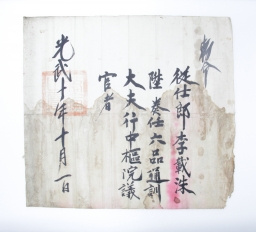 勅令
從仕郎李載洙
陞奏任六品通訓
大夫行中樞院議
官者
光武十年十月一日